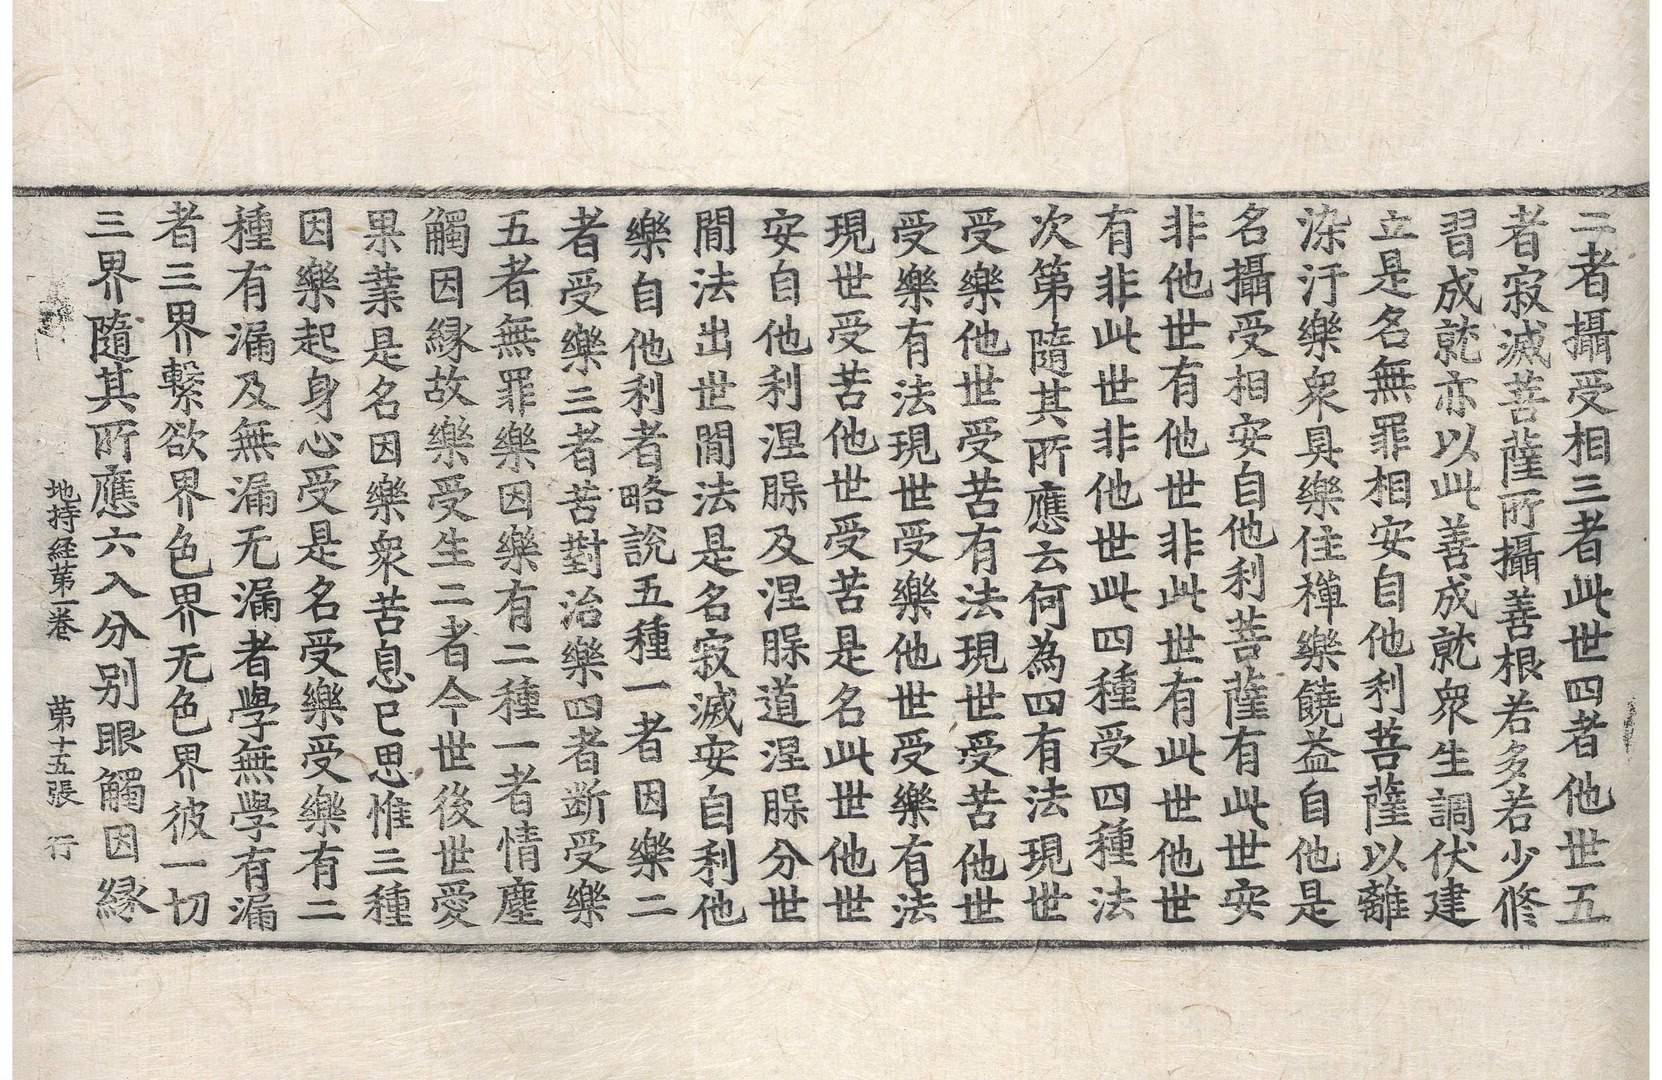 二者攝受相三者此世四者他世五
者寂滅菩薩所攝善根若多若少修
習成就亦以此善成就衆生調伏建
立是名無罪相安自他利菩薩以離
染汙樂衆具樂住禪樂饒益自他是
名攝受相安自他利菩薩有此世安
非他世有他世非此世有此世他世
有非此世非他世此四種受四種法
次第隨其所應云何為四有法現世
受樂他世受苦有法現世受苦他世
受樂有法現世受樂他世受樂有法
現世受苦他世受苦是名此世他世
安自他利涅脲及涅脲道涅脲分世
間法出世間法是名寂滅安自利他
樂自他利者略說五種一者因樂二
者受樂三者苦對治樂四者斷受樂
五者無罪樂因樂有二種一者情塵
觸因緣故樂受生二者今世後世愛
果業是名因樂衆苦息已思惟三種
因樂起身心受是名受樂受樂有二
種有漏及無漏无漏者學無學有漏
者三界繫欲界色界无色界彼一切
三界隨其所應六入分別眼觸因緣
地持経苐一卷 苐十五張 行